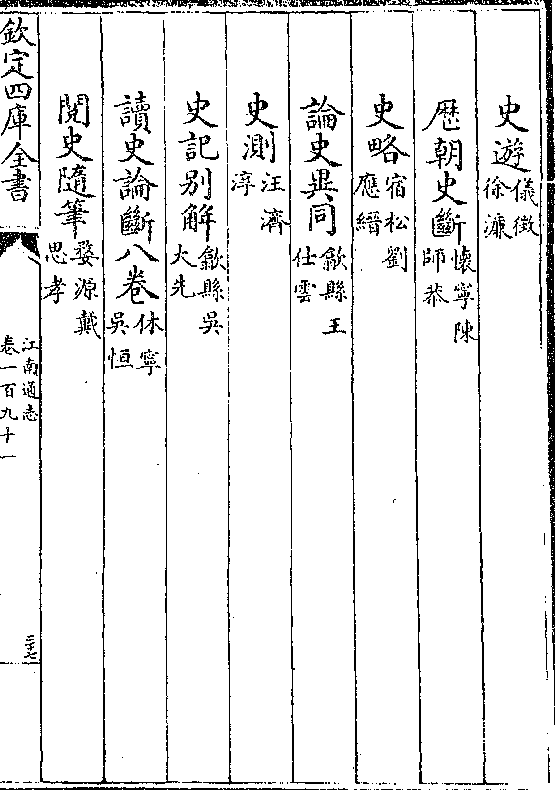 史遊儀徵徐濂
歴朝史斷懷寧陳師恭
史略宿松劉應縉
論史異同歙縣王仕雲
史測汪濟淳
史記别解歙縣吳大先
讀史論斷八卷休寧吳恒
閱史隨筆婺源戴思孝
欽定四庫全書
江南通志
卷一百九十一